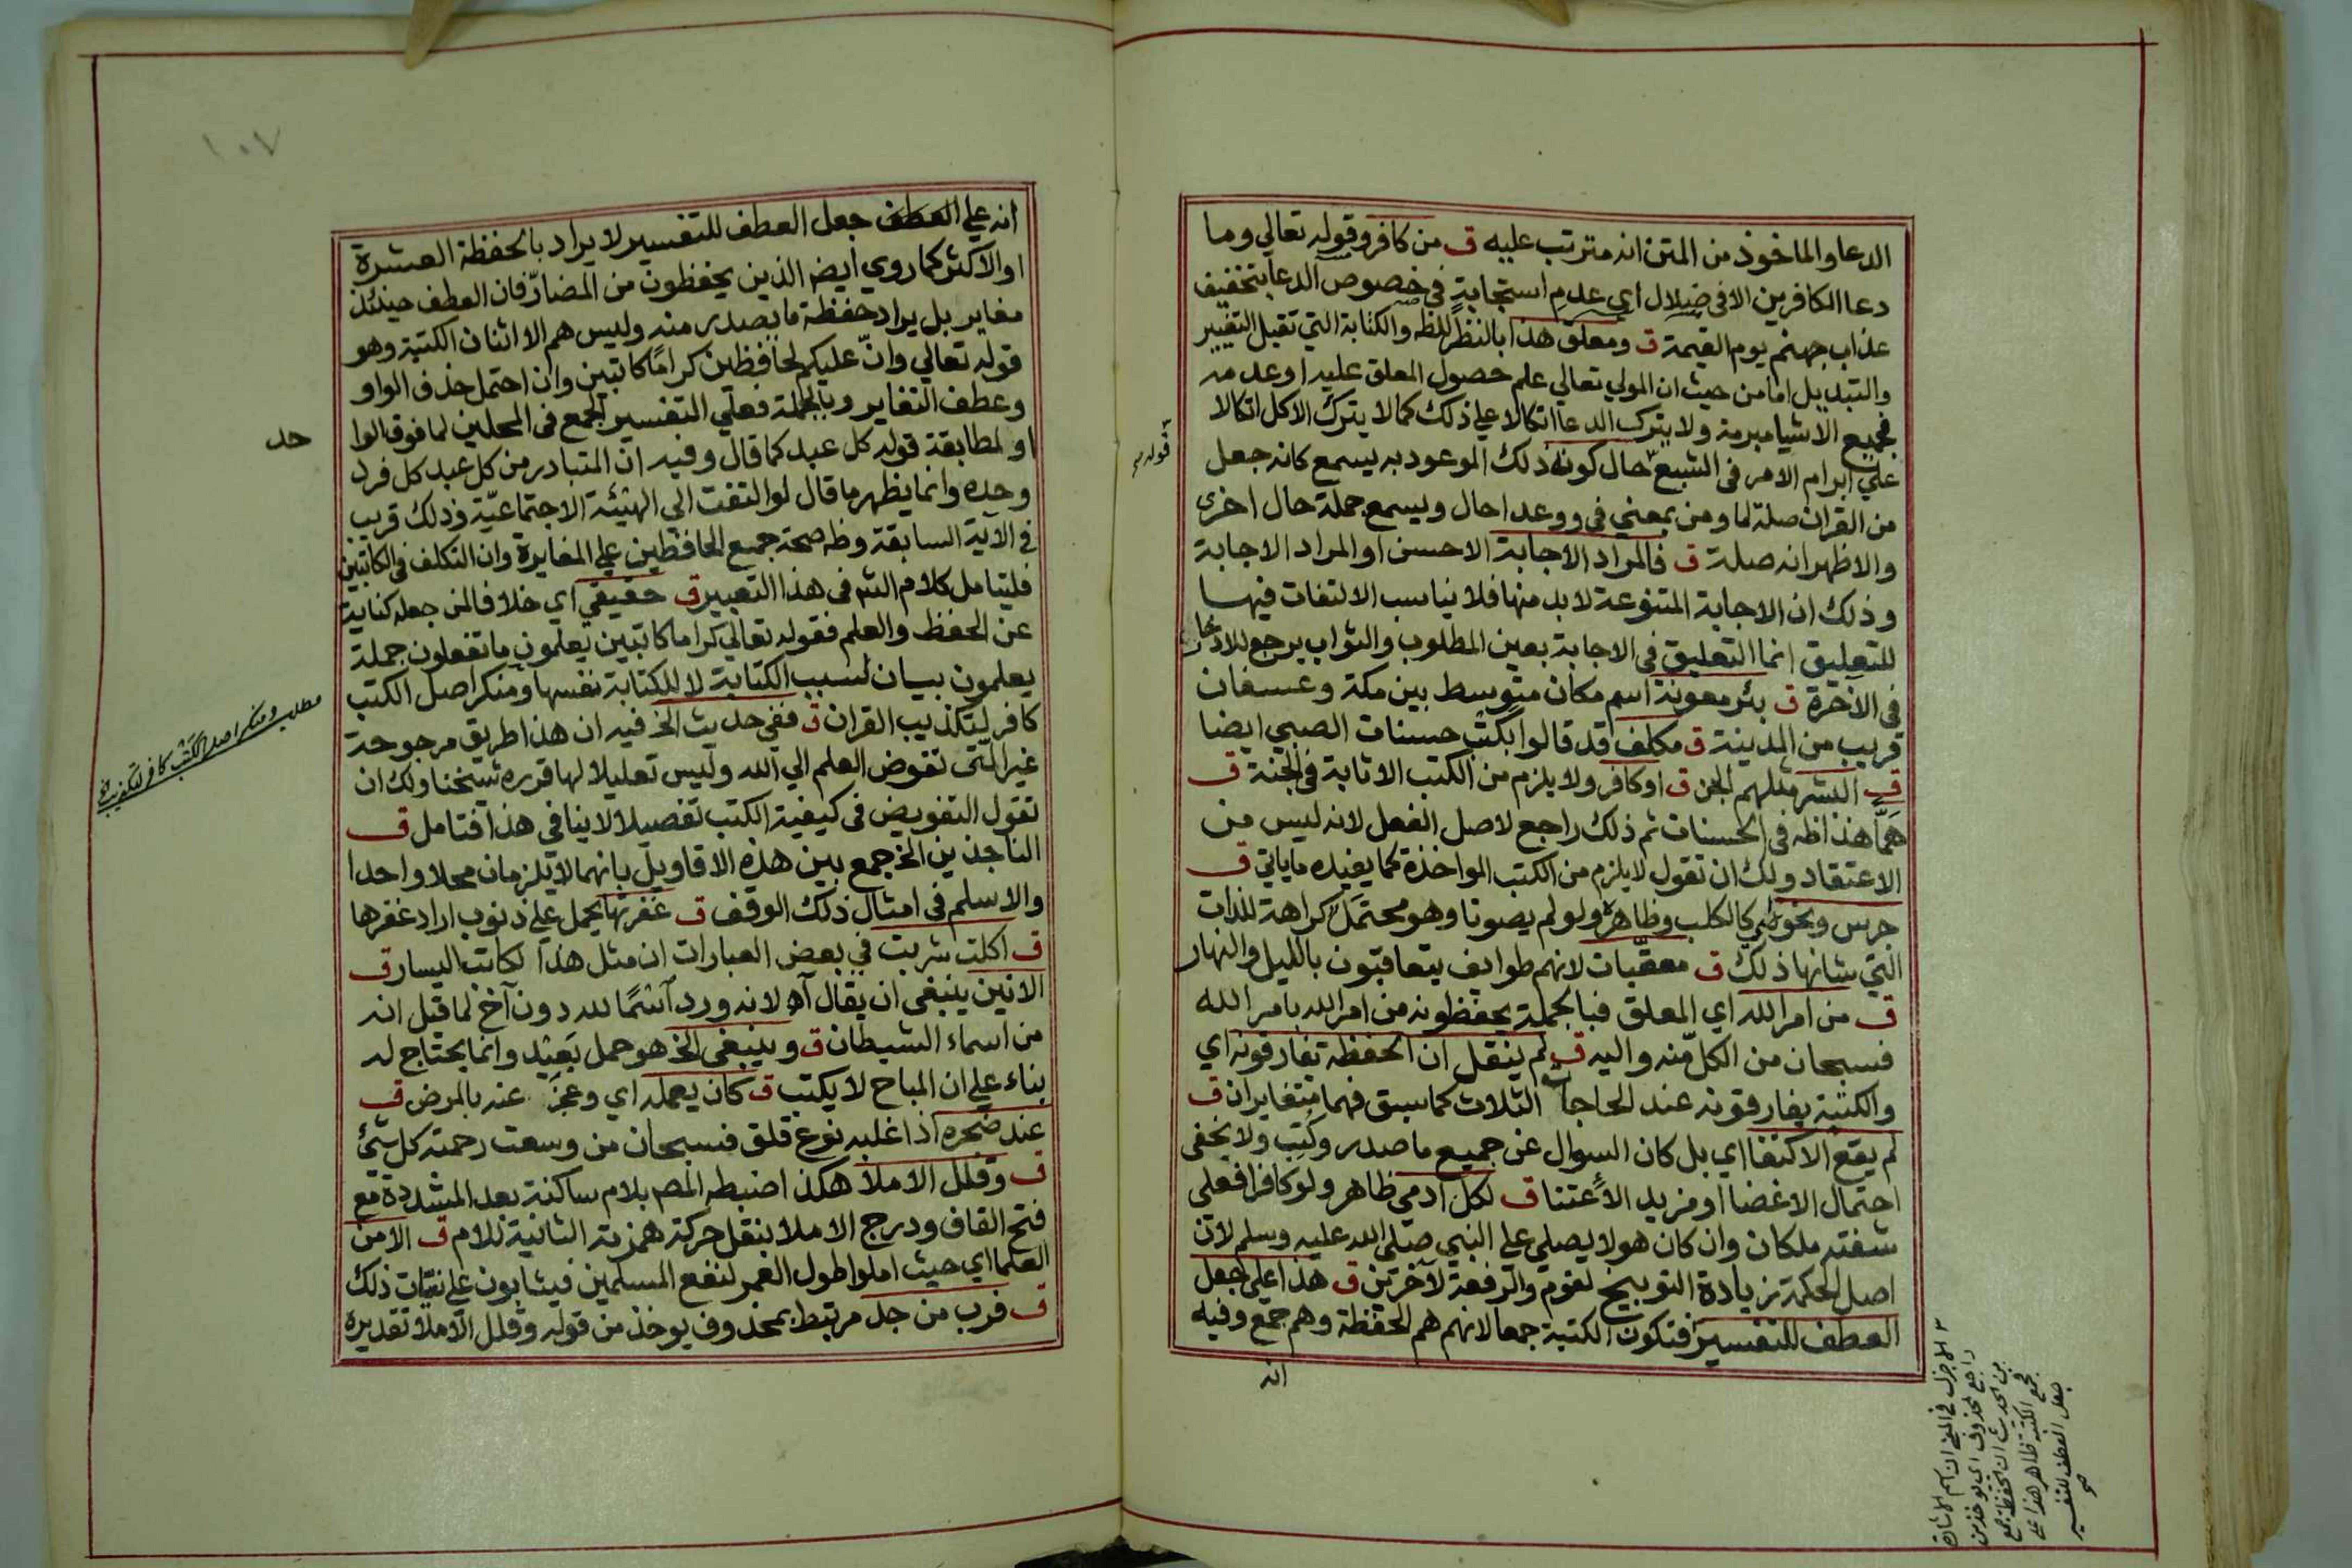 الدعا والماخوذ من المتن انه مترتب عليه ق من كافر وقوله تعالي وما
دعا الكافرين الا في ضلال اي عدم استجابة في خصوص الدعا بتخفيف
عذاب جهنم يوم القيمة ق ومعلق هذا بالنظر للظ والكتابة التي تقبل التغيير
والتبديل اما من حيث ان المولي تعالي علم حصول المعلق عليه او عدمه
فجميع الاشيا مبرمة ولا يترك الدعا اتكالا علي ذلك كما لا يترك الاكل اتكالا
علي ابرام الامر في الشبع حال كونه ذلك الموعود به يسمع كانه جعل
من القران صلة لما ومن بمعني في ووعد احال ويسمع جملة حال اخري
والاظهر انه صلة ق فالمراد الاجابة الاحسن او المراد الاجابة
وذلك ان الاجابة المتنوعة لا بد منها فلا يناسب الالتفات فيها
للتعليق انما التعليق في الاجابة بعين المطلوب والثواب يرجع للادخار
في الاخرة ق بئر معونة اسم مكان متوسط بين مكة وعسفان
قريب من المدينة ق مكلف قد قالوا بكتب حسنات الصبي ايضا
ق البشر مثلهم الجن ق او كافر ولا يلزم من الكتب الاثابة في الجنة ق
همًّا هذا ظه في الحسنات ثم ذلك راجع لاصل الفعل لانه ليس من
الاعتقاد ولك ان تقول لا يلزم من الكتب المواخذة كما يفيده ما ياتي ق
جرس ونحوه اي كالكلب وظاهره ولو لم يصوتا وهو محتمل كراهة للذات
التي شانها ذلك ق معقبات لانهم طوايف يتعاقبون بالليل والنهار
ق من امر الله اي المعلق فبالجملة يحفظونه من امر الله بامر الله
فسبحان من الكل منه واليه ق لم ينقل ان الحفظة تفارقونه اي
والكتبة يفارقونه عند الحاجات الثلاث كما سبق فهما متغايران ق
لم يقع الاكتفا اي بل كان السوال عن جميع ما صدر وكتب ولا يخفي
احتمال الاغضا او مزيد الاعتنا ق لكل ادمي ظاهر ولو كافرا فعلي
شفته ملكان وان كان هو لا يصلي علي النبي صلي الله عليه وسلم لان
اصل الحكمة زيادة التوبيخ لقوم والرفعة لاخرين ق هذا علي جعل
العطف للتفسير فتكون الكتبة جمعا لانهم هم الحفظة وهم جمع وفيه
انه
قوله
في المتن ان اسم الاشارة
راجع لمحذوف اي يوخذ من
من الحديث ان الحفظة جمع
فجمع الكتبة ظاهر هذا علي
جعل العطف للتفسير
١٠٧
انه علي العطف جعل العطف للتفسير لا يراد بالحفظة العشرة
او الاكثر كما روي ايضا الذين يحفظون من المضارّ فان العطف حينئذ
مغاير بل يراد حفظة ما يصدر منه وليس هم الا اثنان الكتبة وهو
قوله تعالي وانّ عليكم لحافظين كرامًا كاتبين وان احتمل حذف الواو
وعطف التغاير وبالجملة فعلي التفسير الجمع في المحلين لما فوق الوا
او لمطابقة قوله كل عبد كما قال وفيه ان المتبادر من كل عبد كل فرد
وحده وانما يظهر ما قال لو التفت الي الهيئة الاجتماعيّة وذلك قريب
في الاية السابقة وظه صحة جميع الحافظين علي المغايرة وان التكلف في الكاتبين
فليتامل كلام الشه في هذا التعبير ق حقيقي اي خلافا لمن جعله كناية
عن الحفظ والعلم فقوله تعالي كراما كاتبين يعلمون ما تفعلون جملة
يعلمون بيان لسبب الكتابة لا للكتابة نفسها ومنكر اصل الكتب
كافر لتكذيب القران ق ففي حديث الخ فيه ان هذا طريق مرجوحة
غير التي تفوض العلم الي الله وليس تعليلا لها قرره شيخنا ولك ان
تقول التفويض في كيفية الكتب تفصيلا لا ينافي هذا فتامل ق
الناجذين الخ جمع بين هذه الاقاويل بانهما لا يلزمان محلا واحدا
والاسلم في امثال ذلك الوقف ق غفرتها يحمل علي ذنوب اراد غفرها
ق اكلت شربت في بعض العبارات ان مثل هذا لكاتب اليسار ق
الانين ينبغي ان يقال آه لانه ورد اسمًا لله دون آخ لما قيل انه
من اسماء الشيطان ق وينبغي الخ هو حمل بعيد وانما يحتاج له
بناء علي ان المباح لا يكتب ق كان يعمله اي وعجز عنه بالمرض ق
عند ضجره اذا غلبه نوع قلق فسبحان من وسعت رحمته كل شئ
ق وقلل الاملا هكذا ضبطه المص بلام ساكنة بعد المشددة مع
فتح القاف ودرج الاملا بنقل حركة همزته الثانية للام ق الا من
العلما اي حيث املوا طول العمر لنفع المسلمين فيثابون علي نيّات ذلك
ق فرب من جد مرتبط بمحذوف يوخذ من قوله وقلل الاملا تقديره
حد
مطلب ومنكر اصل الكتب كافر لتكذيبه